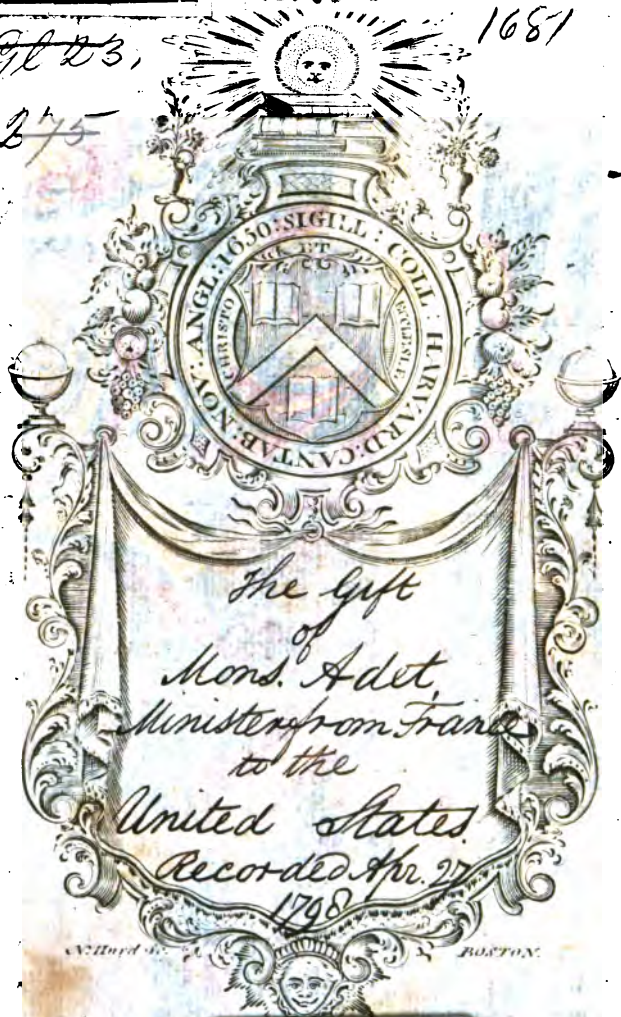 1681
Gl 23,
275
SIGILL : COLL : HARVARD : CANTAB : NOV : ANGL : 1650 :
ET
CHRISTO
ECCLESIÆ
The Gift
of
Mons. Adet,
Minister from France
to the
United States.
Recorded Apr. 27
1798
N. Hurd Sc.
BOSTON.